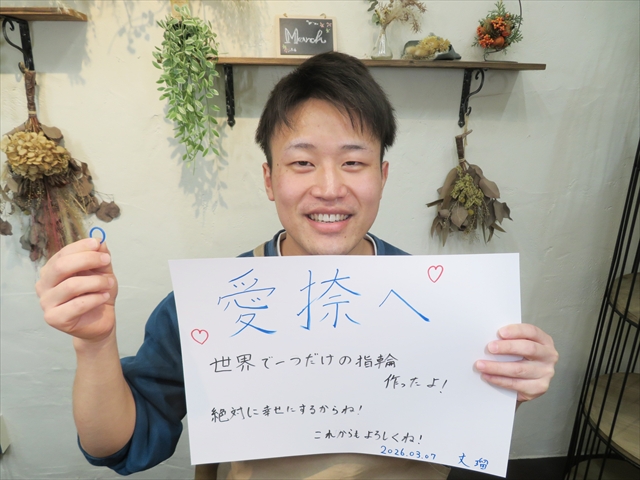 March
愛捺へ
世界で一つだけの指輪
作ったよ!
絶対に幸せにするからね!
これからもよろしくね!
2026.03.07 丈瑠